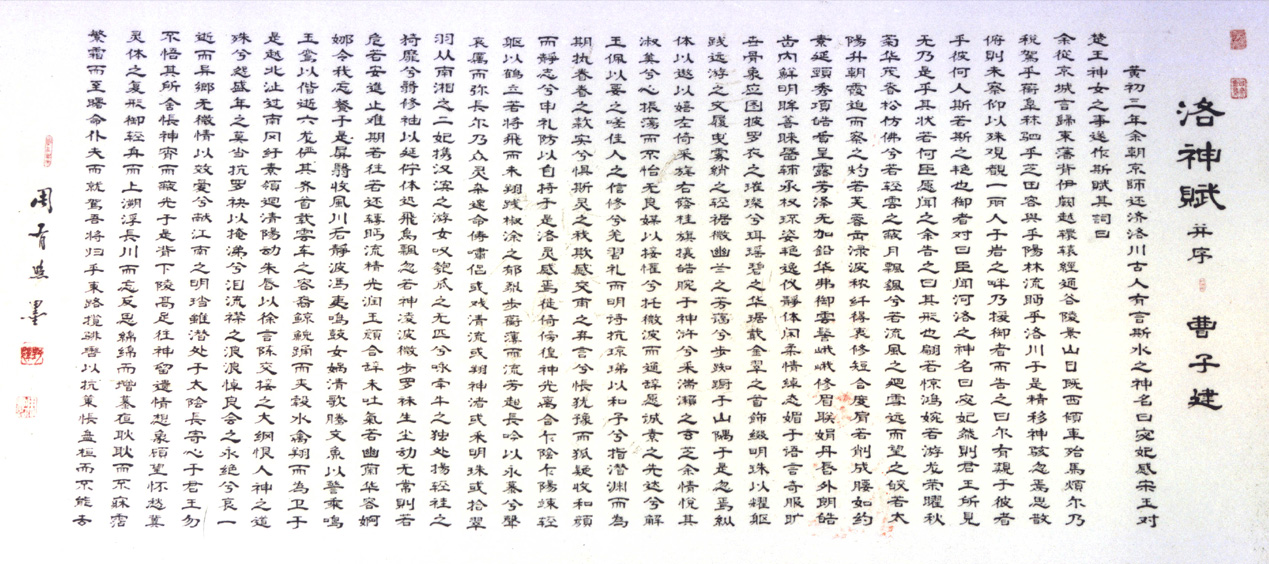 洛神賦 并序 曹子建
黄初三年余朝京师还济洛川古人有言斯水之神名曰宓妃感宋王对
楚王神女之事遂作斯赋其词曰
余从京域言歸東藩背伊阙越轘辕經通谷陵景山日既西傾車殆馬煩尔乃
税駕乎蘅皋秣驷乎芝田容與乎陽林流眄乎洛川于是精移神骇忽焉思散
俯則未察仰以殊观觀一丽人于岩之畔乃援御者而告之曰尔有觌于彼者
乎彼何人斯若斯之艳也御者对曰臣闻河洛之神名曰宓妃然則君王所見
无乃是乎其状若何臣愿闻之余告之曰其形也翩若惊鸿婉若游龙荣曜秋
菊华茂春松仿佛兮若轻雲之蔽月飄飖兮若流風之迴雪远而望之皎若太
陽升朝霞迫而察之灼若芙蓉出渌波秾纤得衷修短合度肩若削成腰如约
素延頸秀項皓質呈露芳泽无加鉛华弗御雲髻峨峨修眉联娟丹唇外朗皓
齿内鮮明眸善睐靥辅承权瑰姿艳逸仪静体闲柔情绰态媚于语言奇服旷
世骨象应图披罗衣之璀璨兮珥瑶碧之华琚戴金翠之首飾缀明珠以耀躯
践远游之文履曳雾绡之轻裾微幽兰之芳蔼兮步踟蹰于山隅于是忽焉纵
体以遨以嬉左倚采旄右荫桂旗攘皓腕于神浒兮采湍濑之玄芝余情悦其
淑美兮心振荡而不怡无良媒以接懽兮托微波而通辞愿诚素之先达兮解
玉佩以要之嗟佳人之信修兮羌習礼而明诗抗琼珶以和予兮指潜渊而為
期执眷眷之款实兮惧斯灵之我欺感交甫之弃言兮怅犹豫而狐疑收和顔
而靜志兮申礼防以自持于是洛灵感焉徙倚傍徨神光离合乍陰乍陽竦轻
躯以鹤立若将飛而未翔践椒涂之郁烈步蘅薄而流芳超長吟以永慕兮聲
哀厲而弥長尔乃众灵杂遝命俦嘯侣或戏清流或翔神渚或采明珠或拾翠
羽从南湘之二妃携汉滨之游女叹匏瓜之无匹兮咏牵牛之独处揚轻袿之
猗靡兮翳修袖以延伫体迅飛凫飄忽若神凌波微步罗袜生尘动无常則若
危若安進止难期若往若还轉眄流精光润玉顔含辞未吐氣若幽蘭华容婀
娜令我忘餐于是屏翳收風川后靜波冯夷鳴鼓女娲清歌騰文魚以警乘鳴
玉鸾以偕逝六龙俨其齐首載雲车之容裔鯨鯢踊而夹轂水禽翔而為卫于
是越北沚过南冈纡素領迴清陽动朱唇以徐言陈交接之大纲恨人神之道
殊兮怨盛年之莫当抗罗袂以掩涕兮泪流襟之浪浪悼良会之永绝兮哀一
逝而异鄉无微情以效爱兮献江南之明珰雖潜处于太陰長寄心于君王忽
不悟其所舍怅神宵而蔽光于是背下陵高足往神留遺情想象顾望怀愁冀
灵体之复形御轻舟而上溯浮長川而忘反思綿綿而增慕夜耿耿而不寐沾
繁霜而至曙命仆夫而就駕吾将归乎東路攬騑辔以抗策怅盘桓而不能去